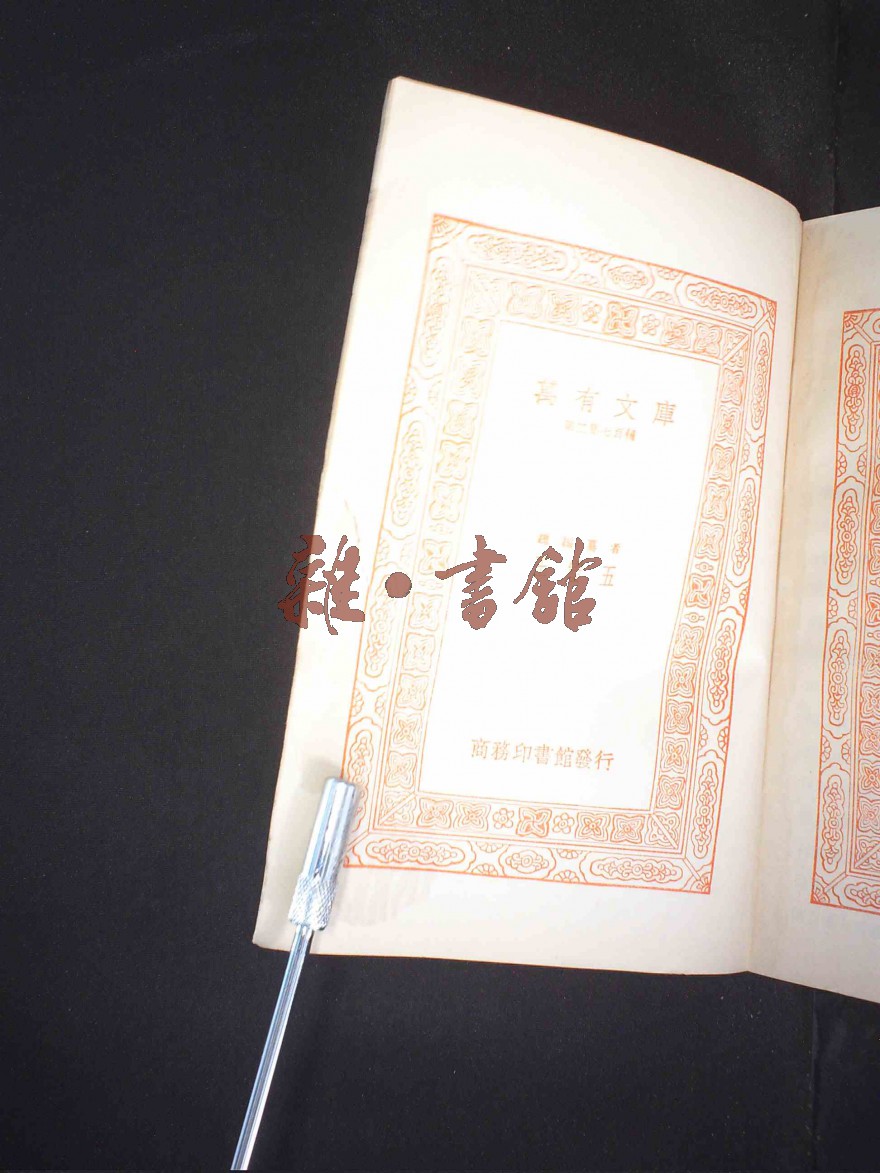 萬有文庫
第二集七百種
者
五
雜·書館
商務印書館發行